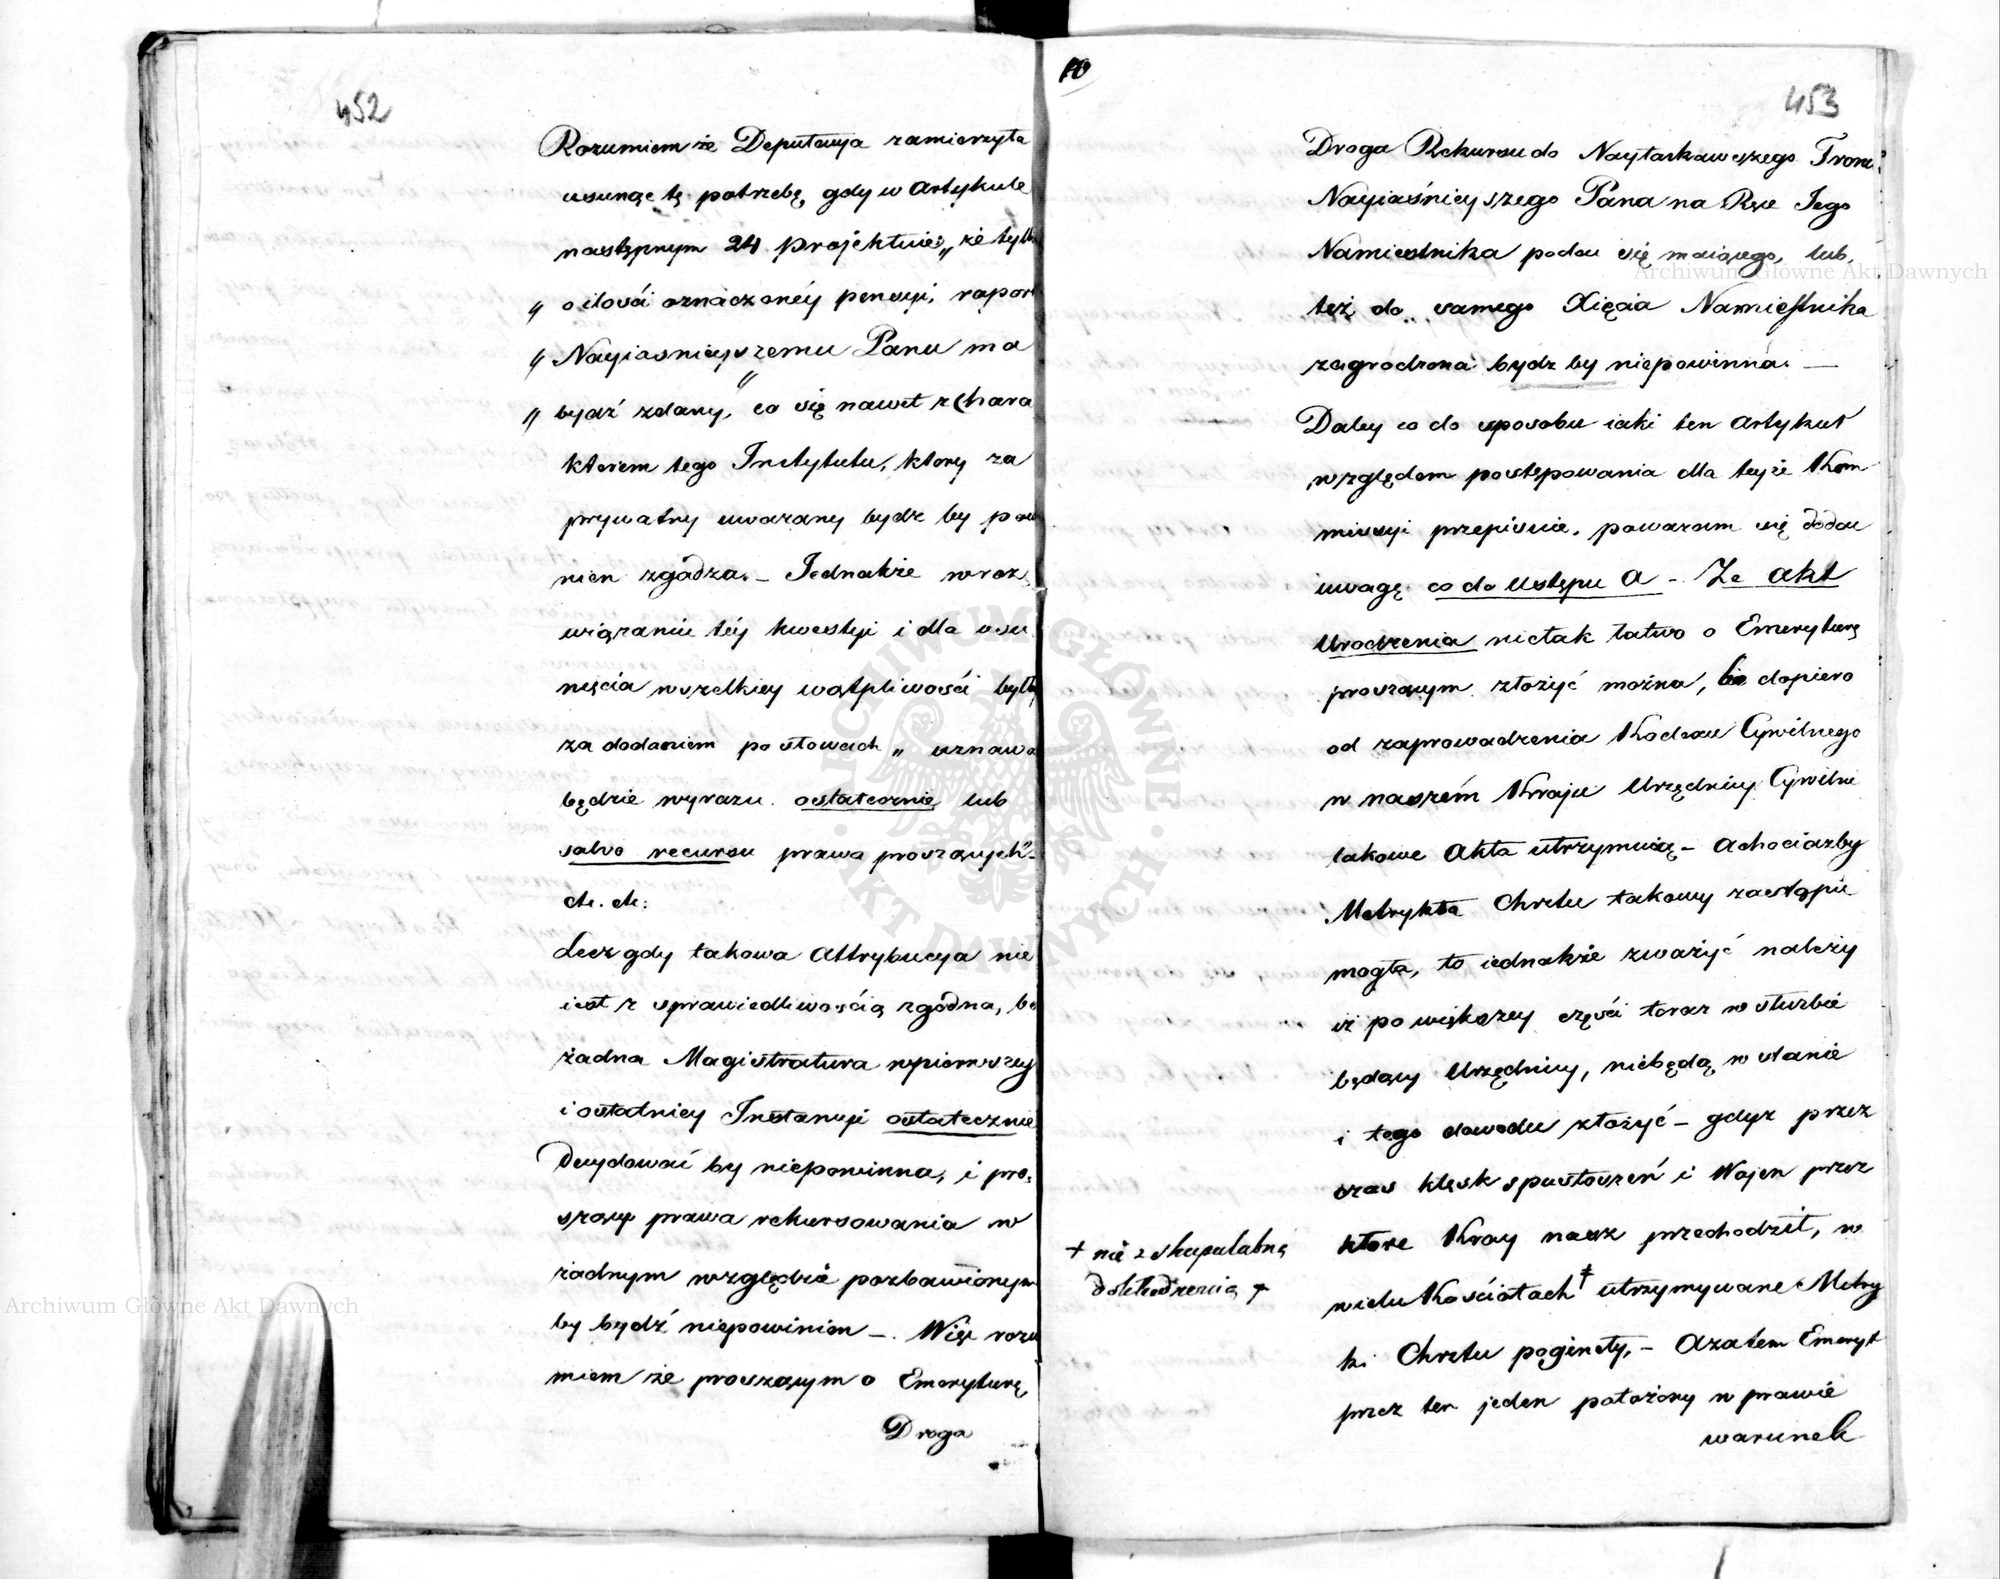 452
Rozumiem że Deputacya zamierzyła
usunąć tę potrzebę, gdy w Artykule
następnym 24 projektuie „ że tylko
„ o ilości oznaczonéy pensyi, raport
„ Nayiasnieyszemu Panu ma
„ bydź zdany," co się nawet z Chara
kterem tego Instytutu, ktory za
prywatny uwazany bydz by pow
nien zgadza. – Iednakże w roz
wiązaniu téy kwestyi i dla usu
nięcia wszelkiey wątpliwości było
za dodaniem po słowach „ uznawa
będzie wyrazu ostatecznie lub
salvo recursu prawa proszących"
etc. etc:
Lecz gdy takowa Attrybucya nie
iest z sprawiedliwością zgodna, bo
żadna Magistratura w pierwszey
i ostatniey Instancyi ostatecznie
Decydować by niepowinna, i pro:
szący prawa rekursowania w
żadnym względzie pozbawionym
by bydź niepowinien –. Więc rozu
miem że proszącym o Emeryturę,
Droga
10
453
Droga Rekursu do Nayłaskawszego Tronu
Nayiaśnieyszego Pana na Ręce Iego
Namiestnika podać się maiącego, lub,
też do samego Xięcia Namiestnika
zagrodzona bydz by niepowinna. —
Daley co do sposobu iaki ten Artykuł
względem postępowania dla teyże Kom
missyi przepisuie, poważam się dodać
uwagę co do Ustępu A – Ze Akt
Urodzenia nie tak łatwo o Emeryturę
proszącym złożyć można, bo dopiero
od zaprowadzenia Kodexu Cywilnego
w naszém Kraju Urzędnicy Cywilni
takowe Akta utrzymuią – A chociażby
Metrykta Chrztu takowy zastąpić
mogła, to iednakże zważyć należy
iż po większey części teraz w służbie
będący Urzędnicy, niebędą w stanie
i tego dowodu złożyć – gdyz przez
czas klęsk spustoszeń i Wojen przez
ktore Kray nasz przechodził, w
wielu Kościołach ‡ utrzymywane Metry
ki Chrztu poginęły, – A zatem Emeryt
przez ten jeden położony w prawie
warunek
+ nie z